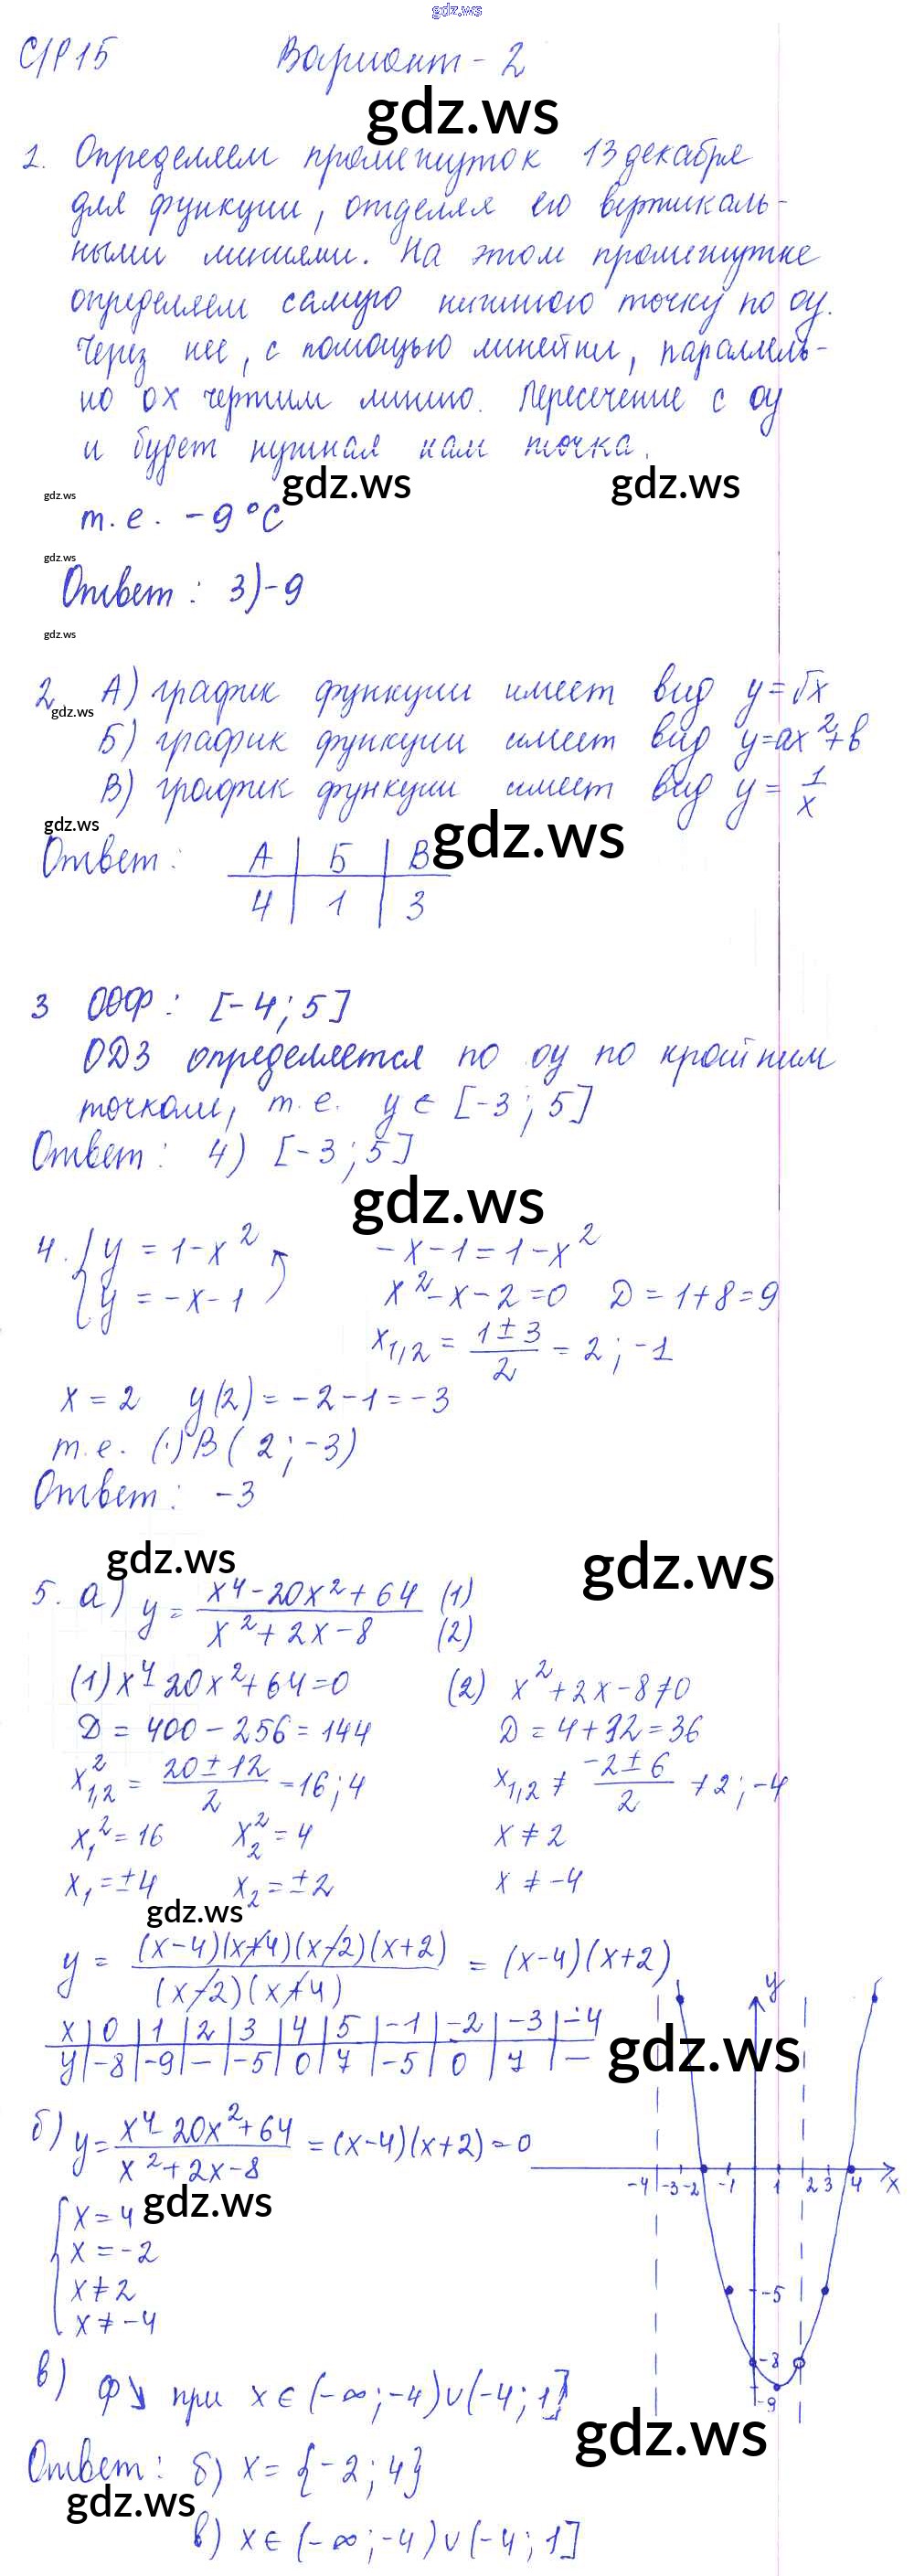 gdz.ws
С/Р 15 Вариант - 2
gdz.ws
1. Определяем промежуток 13 декабря
для функции, отделяя его вертикаль-
ными линиями. На этом промежутке
определяем самую нижнюю точку по оу.
Через нее, с помощью линейки, параллель-
но ох чертим линию. Пересечение с оу
и будет нужная нам точка.
gdz.ws gdz.ws
gdz.ws
т.е. -9°С
gdz.ws
Ответ: 3) -9
gdz.ws
2. А) график функции имеет вид y=√x
gdz.ws
Б) график функции имеет вид y=ax²+b
В) график функции имеет вид y = 1/x
gdz.ws gdz.ws
Ответ: А | Б | В
4 | 1 | 3
3 ООФ: [-4; 5]
ОДЗ определяется по оу по крайним
точкам, т.е. y ∈ [-3; 5]
Ответ: 4) [-3; 5]
gdz.ws
4. { y = 1-x² -x-1 = 1-x²
y = -x-1 x²-x-2=0 D = 1+8=9
x1,2 = (1±3)/2 = 2; -1
x = 2 y(2) = -2-1 = -3
т.е. (·) B (2; -3)
Ответ: -3
gdz.ws gdz.ws
5. а) y = (x⁴-20x²+64)/(x²+2x-8) (1) (2)
(1) x⁴-20x²+64=0 (2) x²+2x-8≠0
D = 400-256=144 D = 4+32=36
x²1,2 = (20±12)/2 = 16; 4 x1,2 ≠ (-2±6)/2 ≠ 2; -4
x1² = 16 x2² = 4 x ≠ 2
x1 = ±4 x2 = ±2 x ≠ -4
gdz.ws
y = (x-4)(x+4)(x-2)(x+2)/(x-2)(x+4) = (x-4)(x+2)
x | 0 | 1 | 2 | 3 | 4 | 5 | -1 | -2 | -3 | -4
y | -8 | -9 | - | -5 | 0 | 7 | -5 | 0 | 7 | -
gdz.ws
y
б) y = (x⁴-20x²+64)/(x²+2x-8) = (x-4)(x+2) = 0
-4 -3 -2 -1 1 2 3 4 x
gdz.ws
{ x = 4
x = -2
x ≠ 2
x ≠ -4
-5
-8
-9
в) ф↘ при x ∈ (-∞; -4) ∪ (-4; 1]
gdz.ws
Ответ: б) x = {-2; 4}
gdz.ws
в) x ∈ (-∞; -4) ∪ (-4; 1]